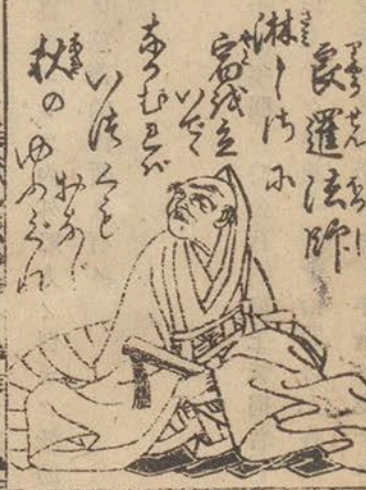 良暹法師
淋しさに
宿を立
いでゝ
ながむれば
いづくも
おなじ
秋の
ゆふぐれ